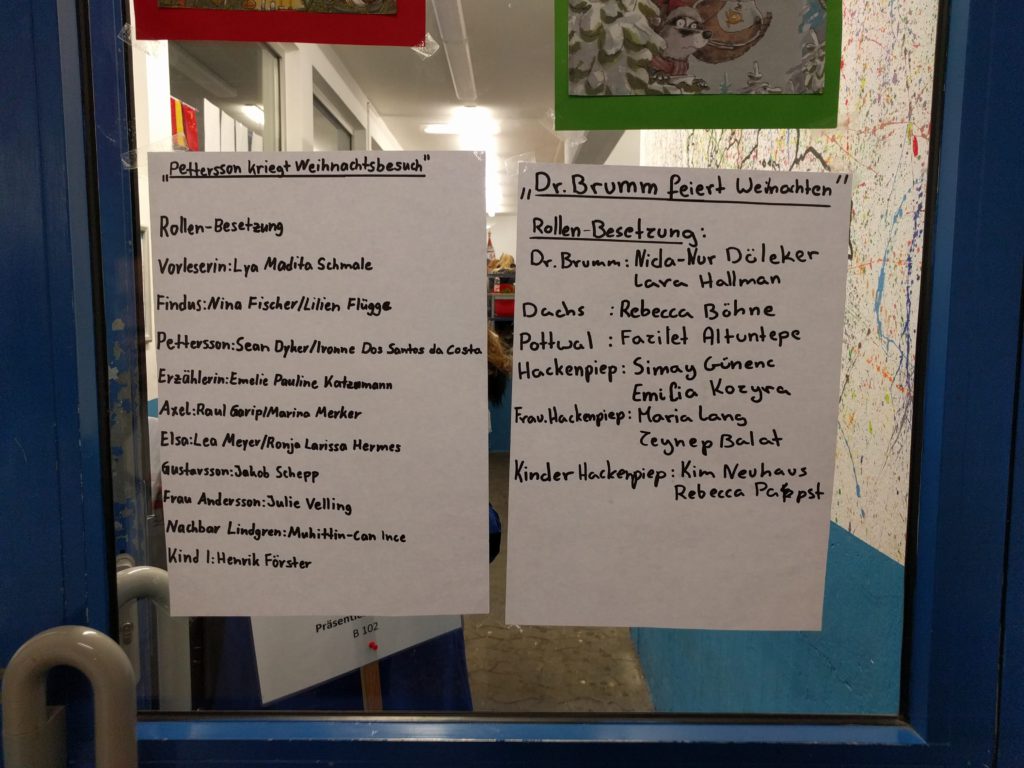 „Pettersson kriegt Weihnachtsbesuch"
Rollen-Besetzung
Vorleserin: Lya Madita Schmale
Findus: Nina Fischer/Lilien Flügge
Pettersson: Sean Dyker/Ivonne Dos Santos da Costa
Erzählerin: Emelie Pauline Katzmann
Axel: Raul Garip/Marina Merker
Elsa: Lea Meyer/Ronja Larissa Hermes
Gustavsson: Jakob Schepp
Frau Andersson: Julie Velling
Nachbar Lindgren: Muhittin-Can Ince
Kind 1: Henrik Förster
B 102
„Dr. Brumm feiert Weihnachten"
Rollen-Besetzung:
Dr. Brumm: Nida-Nur Döleker
Lara Hallman
Dachs : Rebecca Böhne
Pottwal : Fazilet Altuntepe
Hackenpiep: Simay Günenc
Emilia Kozyra
Frau.Hackenpiep: Maria Lang
Zeynep Balat
Kinder Hackenpiep: Kim Neuhaus
Rebecca